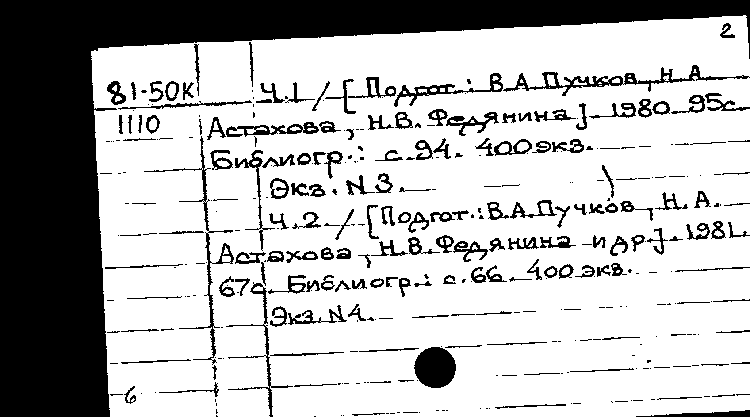 2
81-50К Ч.1 / [Подгот.: В.А.Пучков, Н.А.
1110 Астахова, Н.В. Федянина]. 1980. 95с.
Библиогр.: с.94. 400экз.
Экз. N3.
Ч.2. / [Подгот.: В.А.Пучков, Н.А.
Астахова, Н.В.Федянина и др.]. 1981.
67с. Библиогр.: с.66. 400экз.
Экз. N4.
6